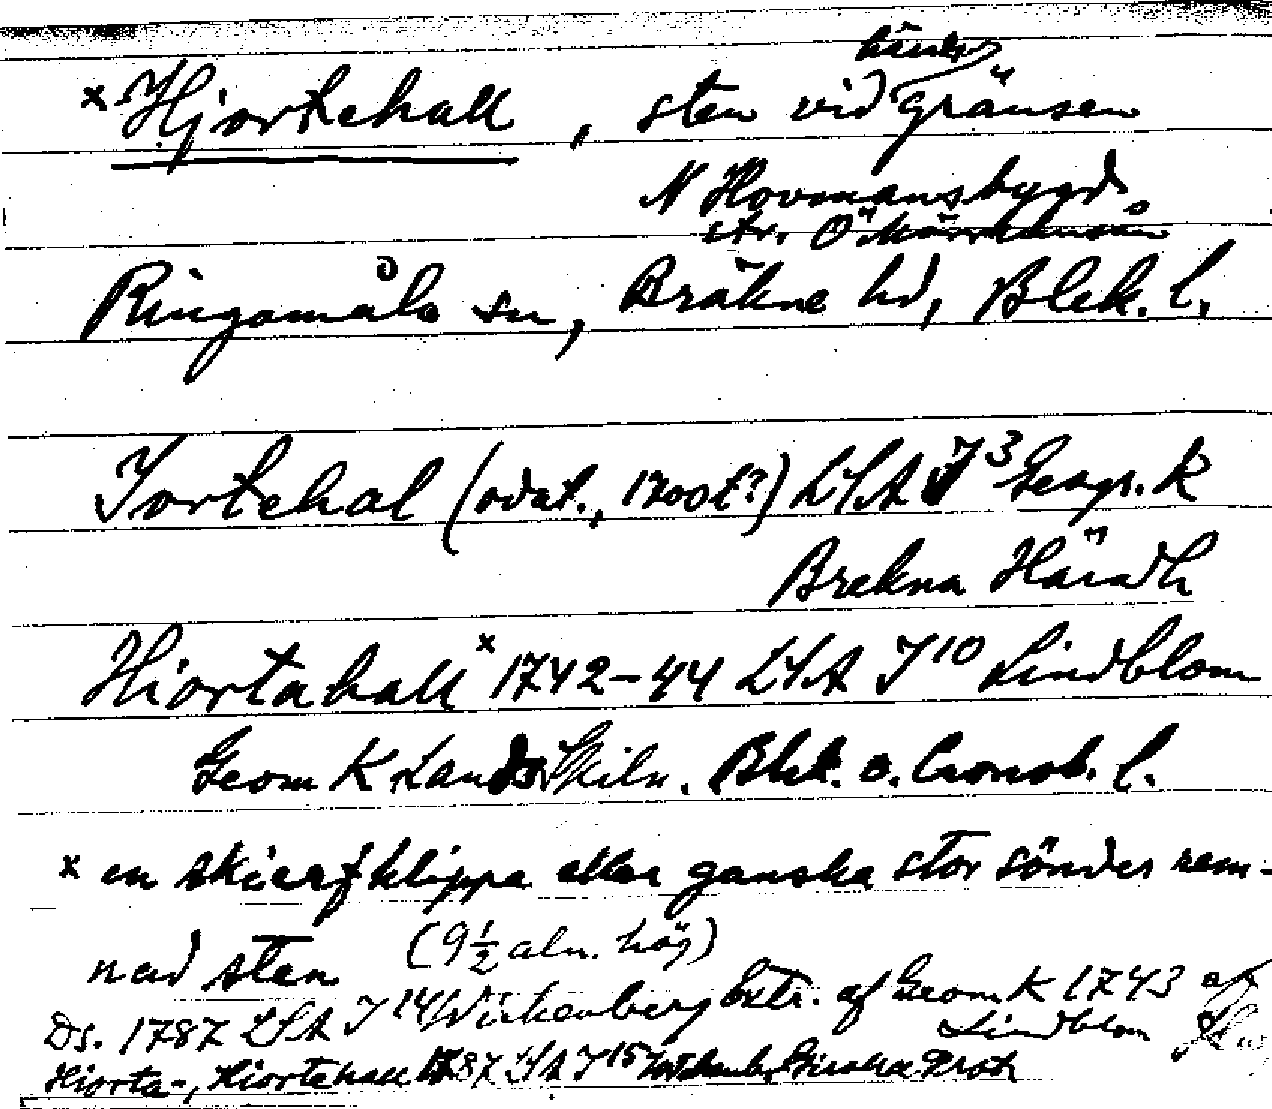 × Hjortehall, sten vid gränsen
N Hovmansbygd
str. Ö
Ringamåla sn, Bräkne hd, Blek. l.
Jortehal (odat., 1700t?) LSA J3 Geogr. K
Brekna Häradh
Hiortahall × 1742-44 LSA J10 Lindblom
Geom K Lands Skiln. Blek. o. Cronob. l.
× en skierfklippa eller ganska stor sönder rem-
nad sten (9½ aln. hög)
Ds. 1787 LSA J14 Wickenberg Extr. af Geom K 1743 af
Lindblom
Hiorta-, Hiortehall 1787 LSA J15